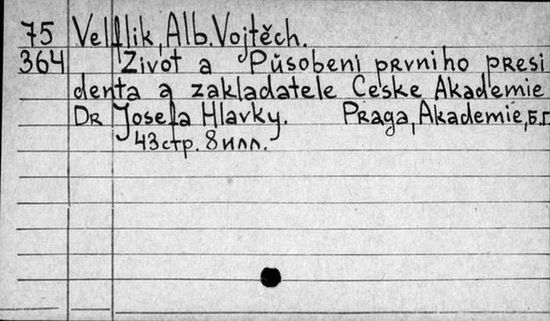 75 Velflik, Alb. Vojtěch.
364 Život a Působeni prvniho presi
denta a zakladatele Česke Akademie
Dr Josefa Hlavky. Praga, Akademie, б.г.
43 стр. 8 илл.